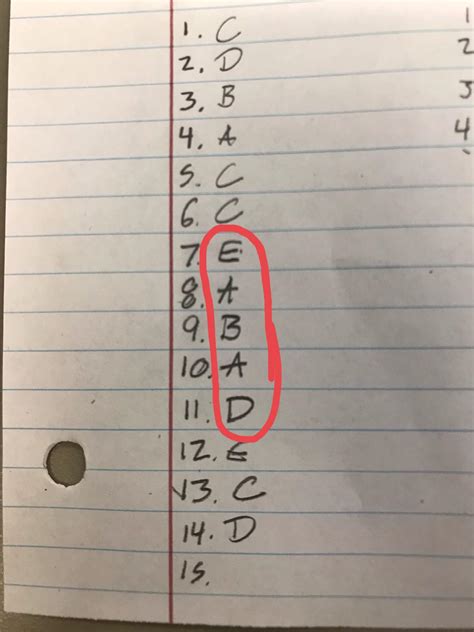 1. C
2. D
3. B
4. A
5. C
6. C
7. E
8. A
9. B
10. A
11. D
12. E
13. C
14. D
15.
1
2
3
4